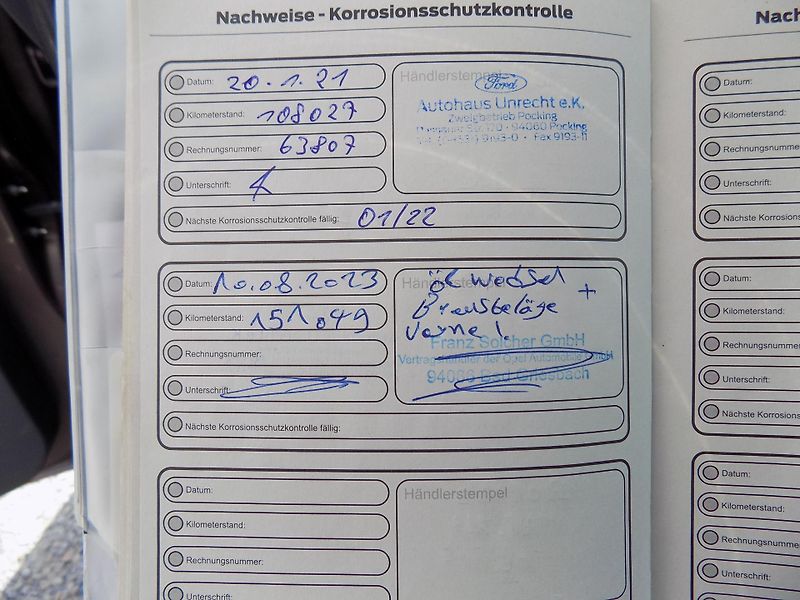 Nachweise - Korrosionsschutzkontrolle
Datum: 20.1.21
Kilometerstand: 108027
Rechnungsnummer: 63807
Unterschrift:
Nächste Korrosionsschutzkontrolle fällig: 01/22
Händlerstempel
Ford
Autohaus Unrecht e.K.
Zweigbetrieb Pocking
94060 Pocking
9193-0 · Fax 9193-11
Datum: 10.08.2023
Kilometerstand: 151.049
Rechnungsnummer:
Unterschrift:
Nächste Korrosionsschutzkontrolle fällig:
Händlerstempel
Öl wechsel +
Bremsbeläge
Vorne !.
Franz Solcher GmbH
Vertragshändler der Opel Automobile GmbH
94086 Bad Griesbach
Datum:
Kilometerstand:
Rechnungsnummer:
Unterschrift:
Händlerstempel
Nach
Datum:
Kilometerstand:
Rechnungsnumm
Unterschrift:
Nächste Korrosions
Datum:
Kilometerstand:
Rechnungsnumm
Unterschrift:
Nächste Korrosions
Datum:
Kilometerstand:
Rechnungsnumm
Unterschrift: